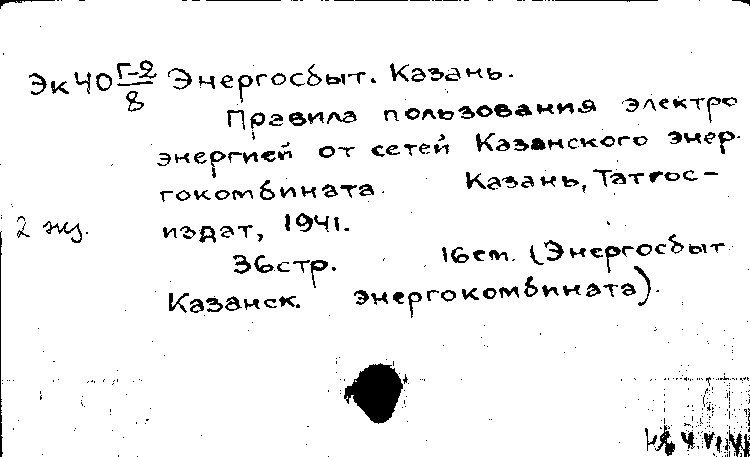 Эк 40 Г-2/8 Энергосбыт. Казань.
Правила пользования электро
энергией от сетей Казанского энер-
гокомбината. Казань, Татгос-
2 экз. издат, 1941.
36стр. 16см. (Энергосбыт
Казанск. энергокомбината).